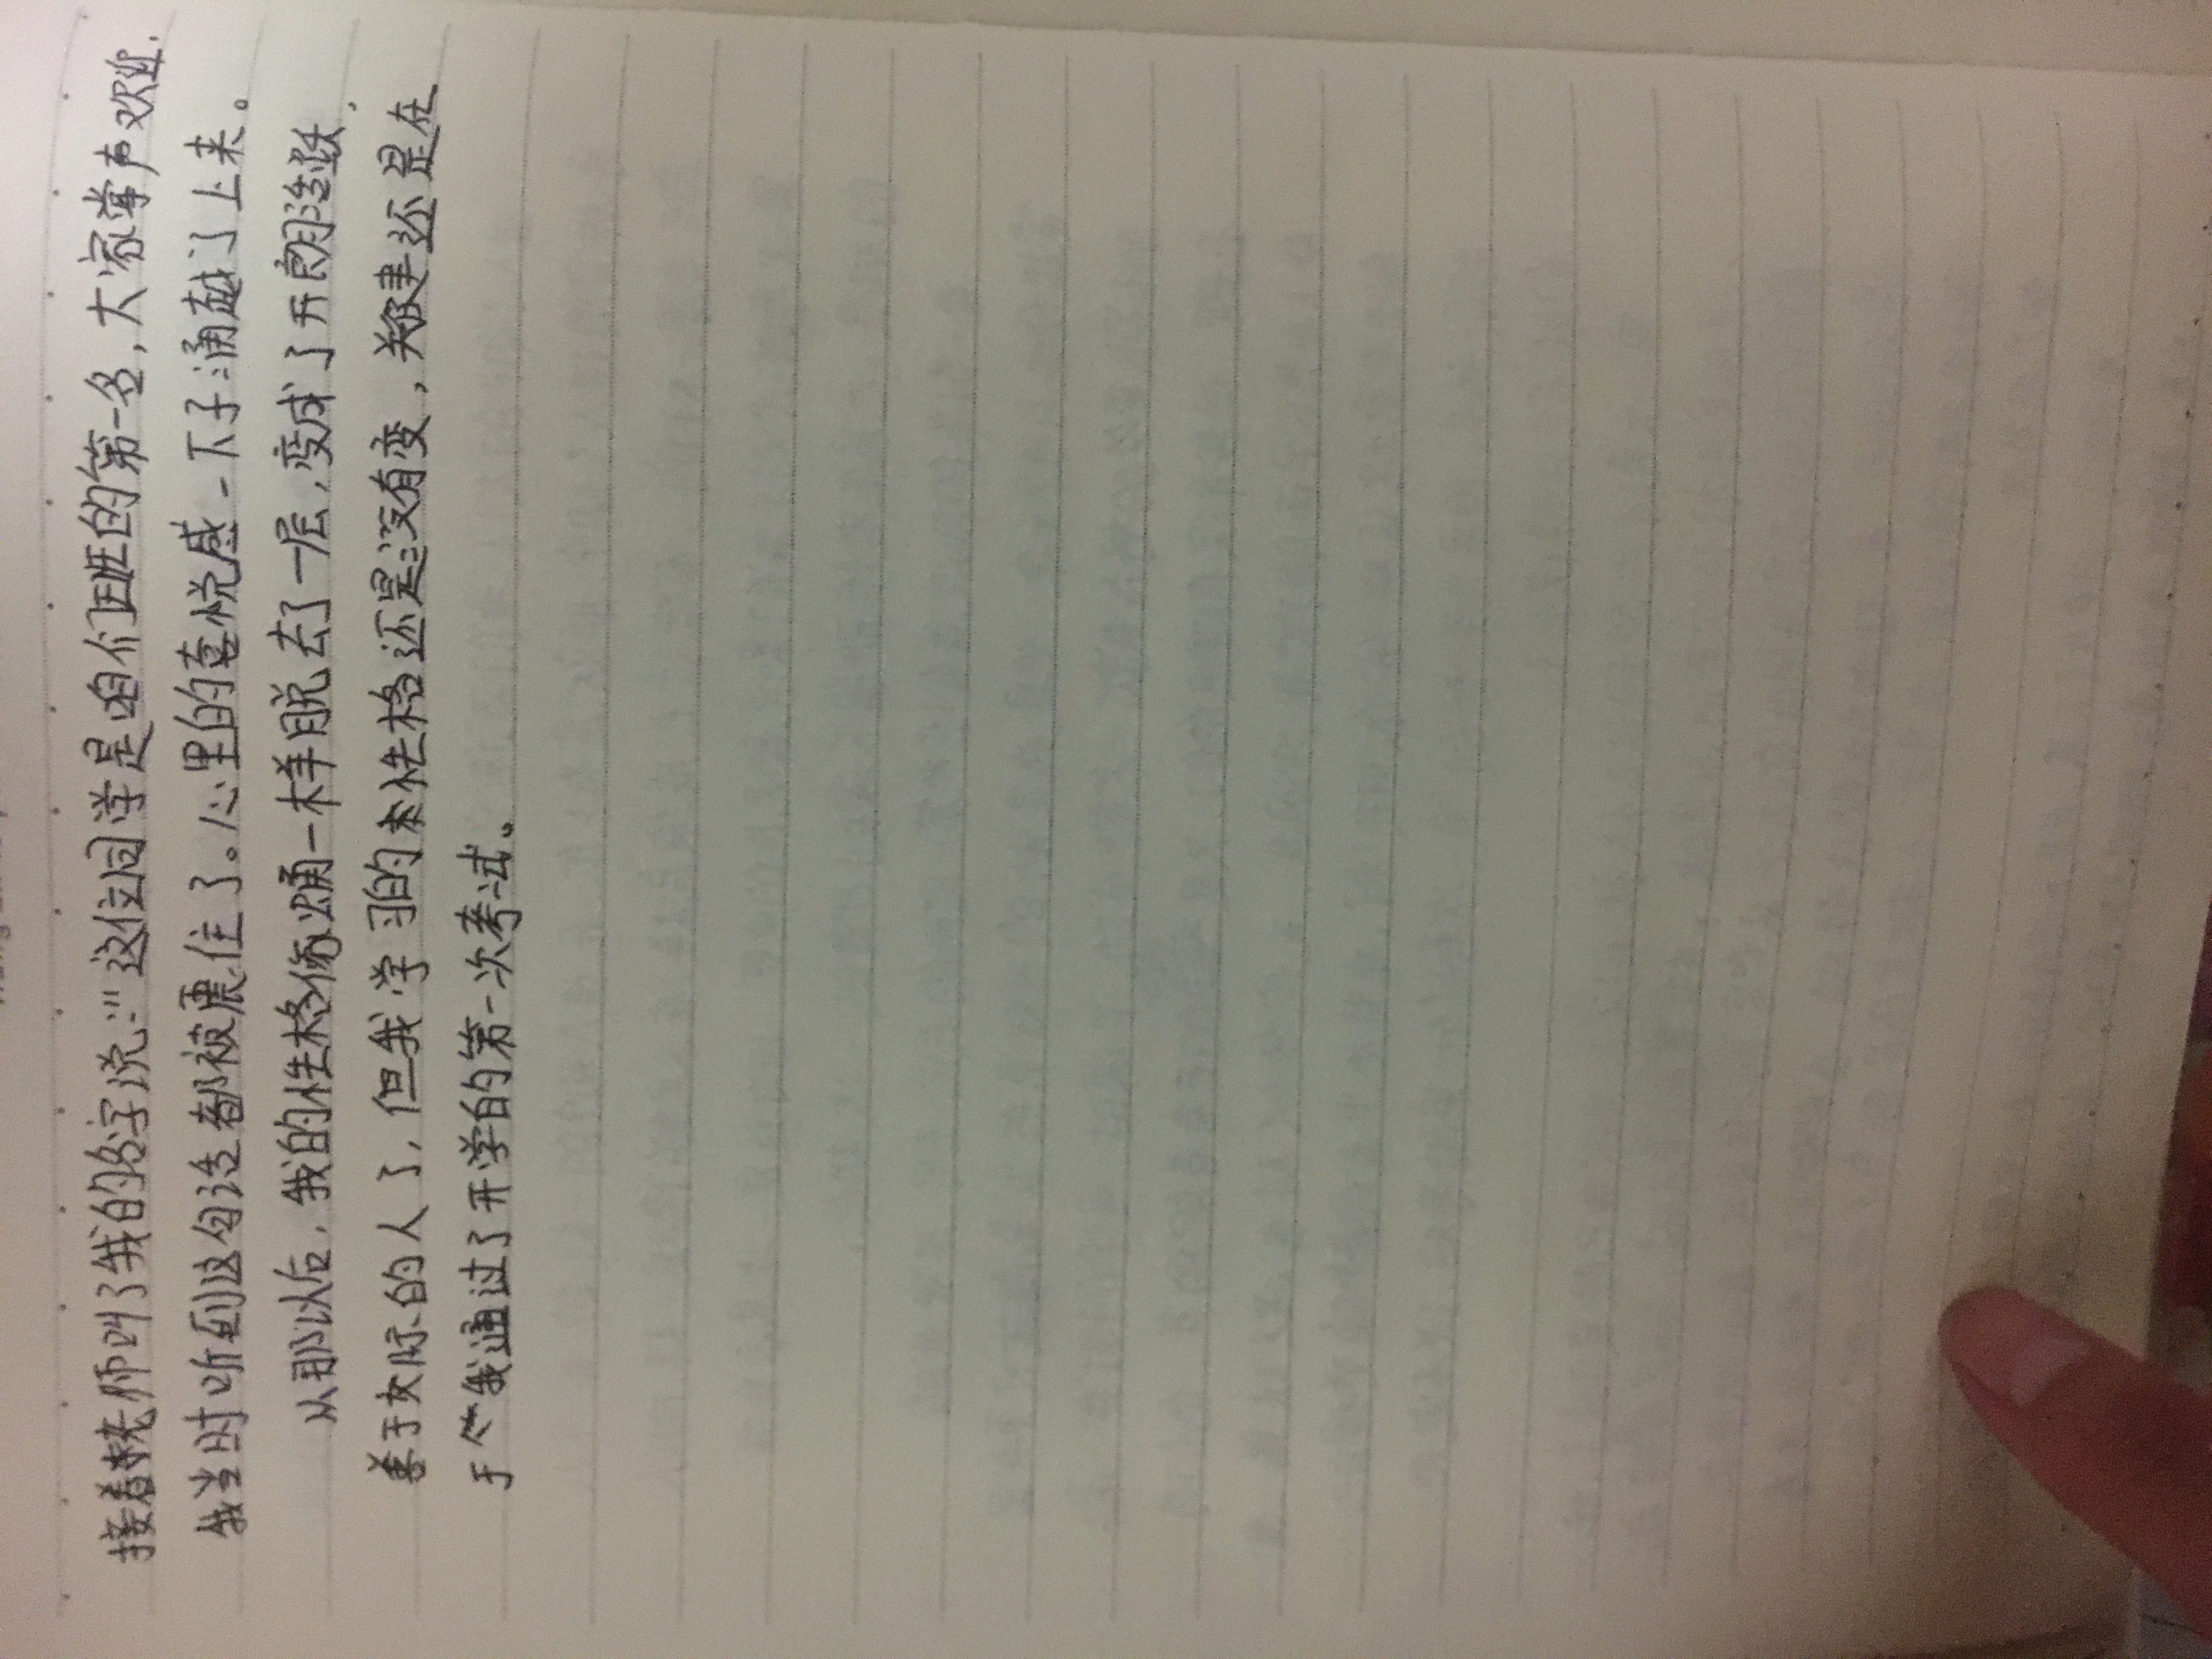 接着老师叫了我的名字说:"这位同学是咱们班的第一名,大家掌声欢迎.
我当时听到这句话都被震住了。心里的喜悦感一下子涌越了上来。
从那以后,我的性格像一样脱去了一层,变成了开朗活跃,
善于交际的人了,但我学习的本性格还是没有变,关键还是在
于我通过了开学的第一次考试。